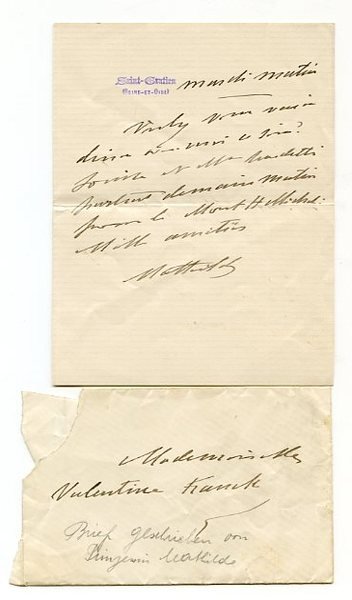 Saint-Gratien
(Seine-et-Oise)
mardi matin
Voulez vous venir
diner avec moi ce soir?
partent demain matin
pour le Mont St Michel
Mille amitiés
Mathilde
Mademoiselle
Valentine
Brief geschrieben von
Prinzessin Mathilde